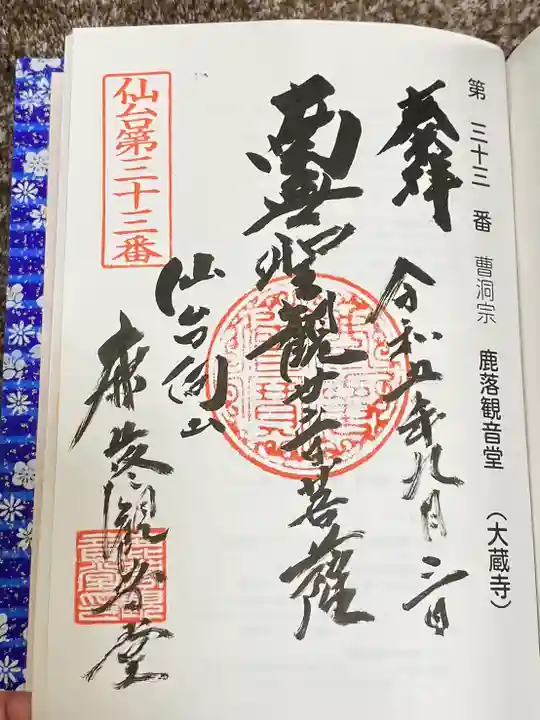 第三十三番 曹洞宗 鹿落観音堂 (大蔵寺)
奉拝 令和五年九月二日
聖観世音菩薩
仙台
鹿落観音堂
仙台第三十三番